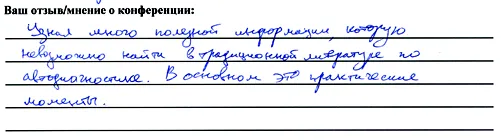 Ваш отзыв/мнение о конференции:
Узнал много полезной информации, которую
невозможно найти в традиционной литературе по
автодиагностике. В основном это практические
моменты.